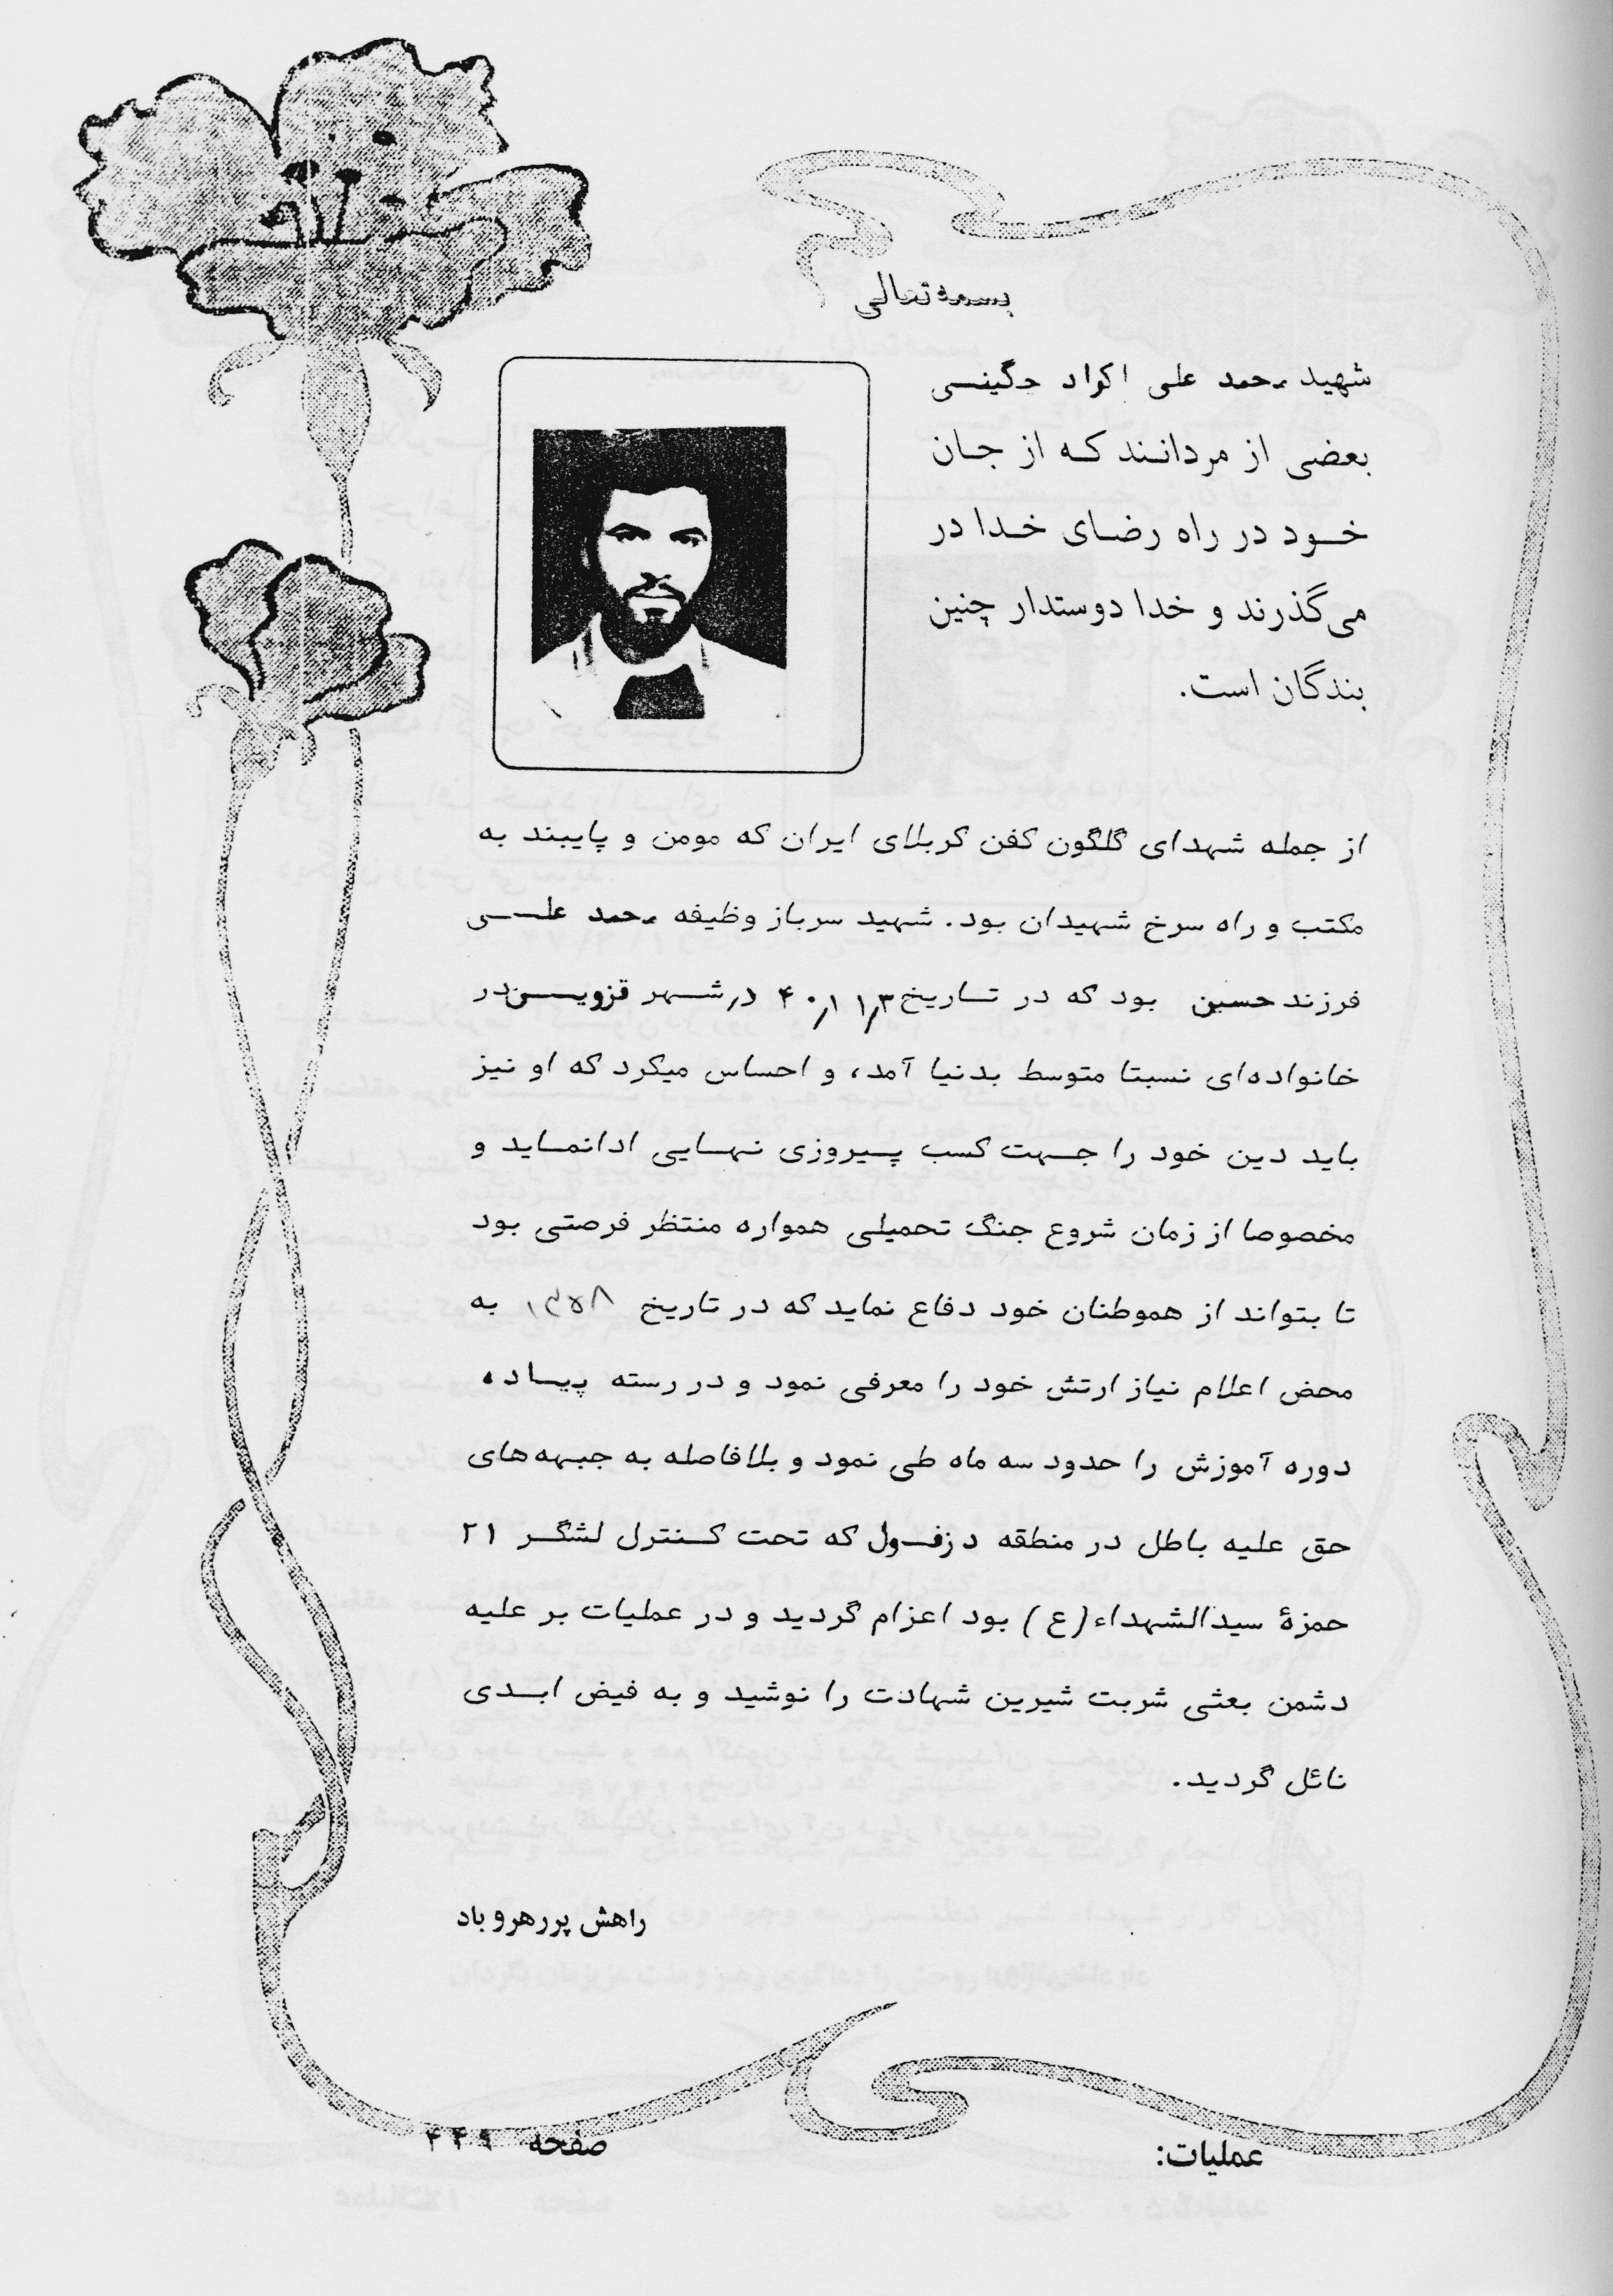 بسمه تعالی
شهید محمد علی اکراد حگینی
بعضی از مردانند که از جان
خود در راه رضای خدا در
می‌گذرند و خدا دوستدار چنین
بندگان است.
از جمله شهدای گلگون کفن کربلای ایران که مومن و پایبند به
مکتب و راه سرخ شهیدان بود. شهید سرباز وظیفه محمد علی
فرزند حسین بود که در تاریخ ۴۰/۱۱/۳ در شهر قزوین در
خانواده‌ای نسبتا متوسط بدنیا آمد، و احساس میکرد که او نیز
باید دین خود را جهت کسب پیروزی نهایی ادانماید و
مخصوصا از زمان شروع جنگ تحمیلی همواره منتظر فرصتی بود
تا بتواند از هموطنان خود دفاع نماید که در تاریخ ۱۳۵۸ به
محض اعلام نیاز ارتش خود را معرفی نمود و در رسته پیاده
دوره آموزش را حدود سه ماه طی نمود و بلافاصله به جبهه‌های
حق علیه باطل در منطقه دزفول که تحت کنترل لشگر ۲۱
حمزهٔ سیدالشهداء (ع) بود اعزام گردید و در عملیات بر علیه
دشمن بعثی شربت شیرین شهادت را نوشید و به فیض ابدی
نائل گردید.
راهش پررهرو باد
عملیات:
صفحه ۴۴۹